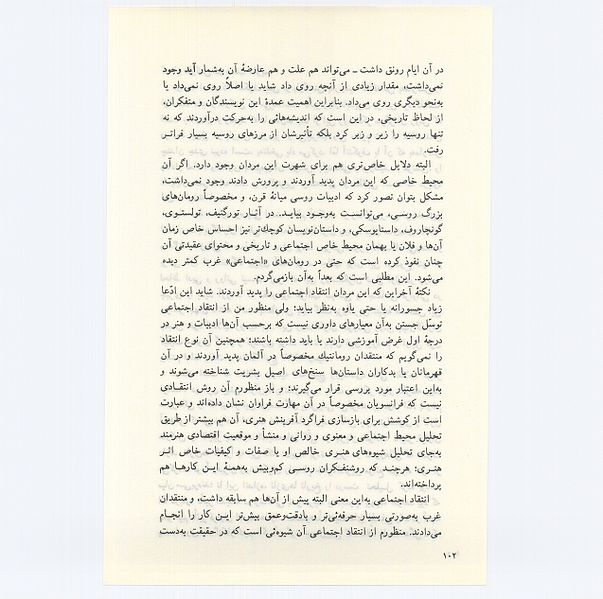 در آن ایام رونق داشت ـ می‌تواند هم علت و هم عارضهٔ آن به‌شمار آید وجود
نمی‌داشت، مقدار زیادی از آنچه روی داد شاید یا اصلاً روی نمی‌داد یا
به‌نحو دیگری روی می‌داد. بنابراین اهمیت عمدهٔ این نویسندگان و متفکران،
از لحاظ تاریخی، در این است که اندیشه‌هائی را به‌حرکت درآوردند که نه
تنها روسیه را زیر و زبر کرد بلکه تأثیرشان از مرزهای روسیه بسیار فراتر
رفت.
البته دلایل خاص‌تری هم برای شهرت این مردان وجود دارد. اگر آن
محیط خاصی که این مردان پدید آوردند و پرورش دادند وجود نمی‌داشت،
مشکل بتوان تصور کرد که ادبیات روسی میانهٔ قرن، و مخصوصاً رومان‌های
بزرگ روسی، می‌توانست به‌وجود بیاید. در آثار تورگنیف، تولستوی،
گونچاروف، داستایوسکی، و داستان‌نویسان کوچك‌تر نیز احساس خاص زمان
آن‌ها و فلان یا بهمان محیط خاص اجتماعی و تاریخی و محتوای عقیدتی آن
چنان نفوذ کرده است که حتی در رومان‌های «اجتماعی» غرب کمتر دیده
می‌شود. این مطلبی است که بعداً به‌آن بازمی‌گردم.
نکتهٔ آخراین که این مردان انتقاد اجتماعی را پدید آوردند. شاید این ادّعا
زیاد جسورانه یا حتی یاوه به‌نظر بیاید؛ ولی منظور من از انتقاد اجتماعی
توسّل جستن به‌آن معیارهای داوری نیست که برحسب آن‌ها ادبیات و هنر در
درجهٔ اول غرض آموزشی دارند یا باید داشته باشند؛ همچنین آن نوع انتقاد
را نمی‌گویم که منتقدان رومانتیك مخصوصاً در آلمان پدید آوردند و در آن
قهرمانان یا بدکاران داستان‌ها سنخ‌های اصیل بشریت شناخته می‌شوند و
به‌این اعتبار مورد بررسی قرار می‌گیرند؛ و باز منظورم آن روش انتقادی
نیست که فرانسویان مخصوصاً در آن مهارت فراوان نشان داده‌اند و عبارت
است از کوشش برای بازسازی فراگرد آفرینش هنری، آن هم بیشتر از طریق
تحلیل محیط اجتماعی و معنوی و روانی و منشأ و موقعیت اقتصادی هنرمند
به‌جای تحلیل شیوه‌های هنری خالص او یا صفات و کیفیات خاص اثر
هنری؛ هرچند که روشنفکران روسی کم‌وبیش به‌همهٔ این کارها هم
پرداخته‌اند.
انتقاد اجتماعی به‌این معنی البته پیش از آن‌ها هم سابقه داشت، و منتقدان
غرب به‌صورتی بسیار حرفه‌ئی‌تر و بادقت‌وعمق بیش‌تر این کار را انجام
می‌دادند. منظورم از انتقاد اجتماعی آن شیوه‌ئی است که در حقیقت به‌دست
۱۰۲